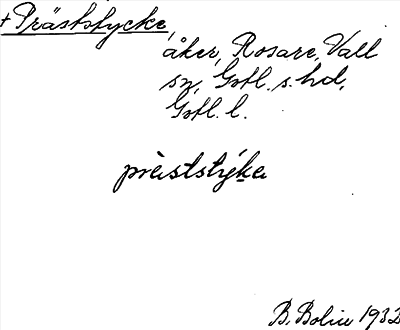 + Präststycke,
åker, Rosare, Vall
sn, Gotl. s. hd,
Gotl. l.
prèiststýka
B. Bolin 1932